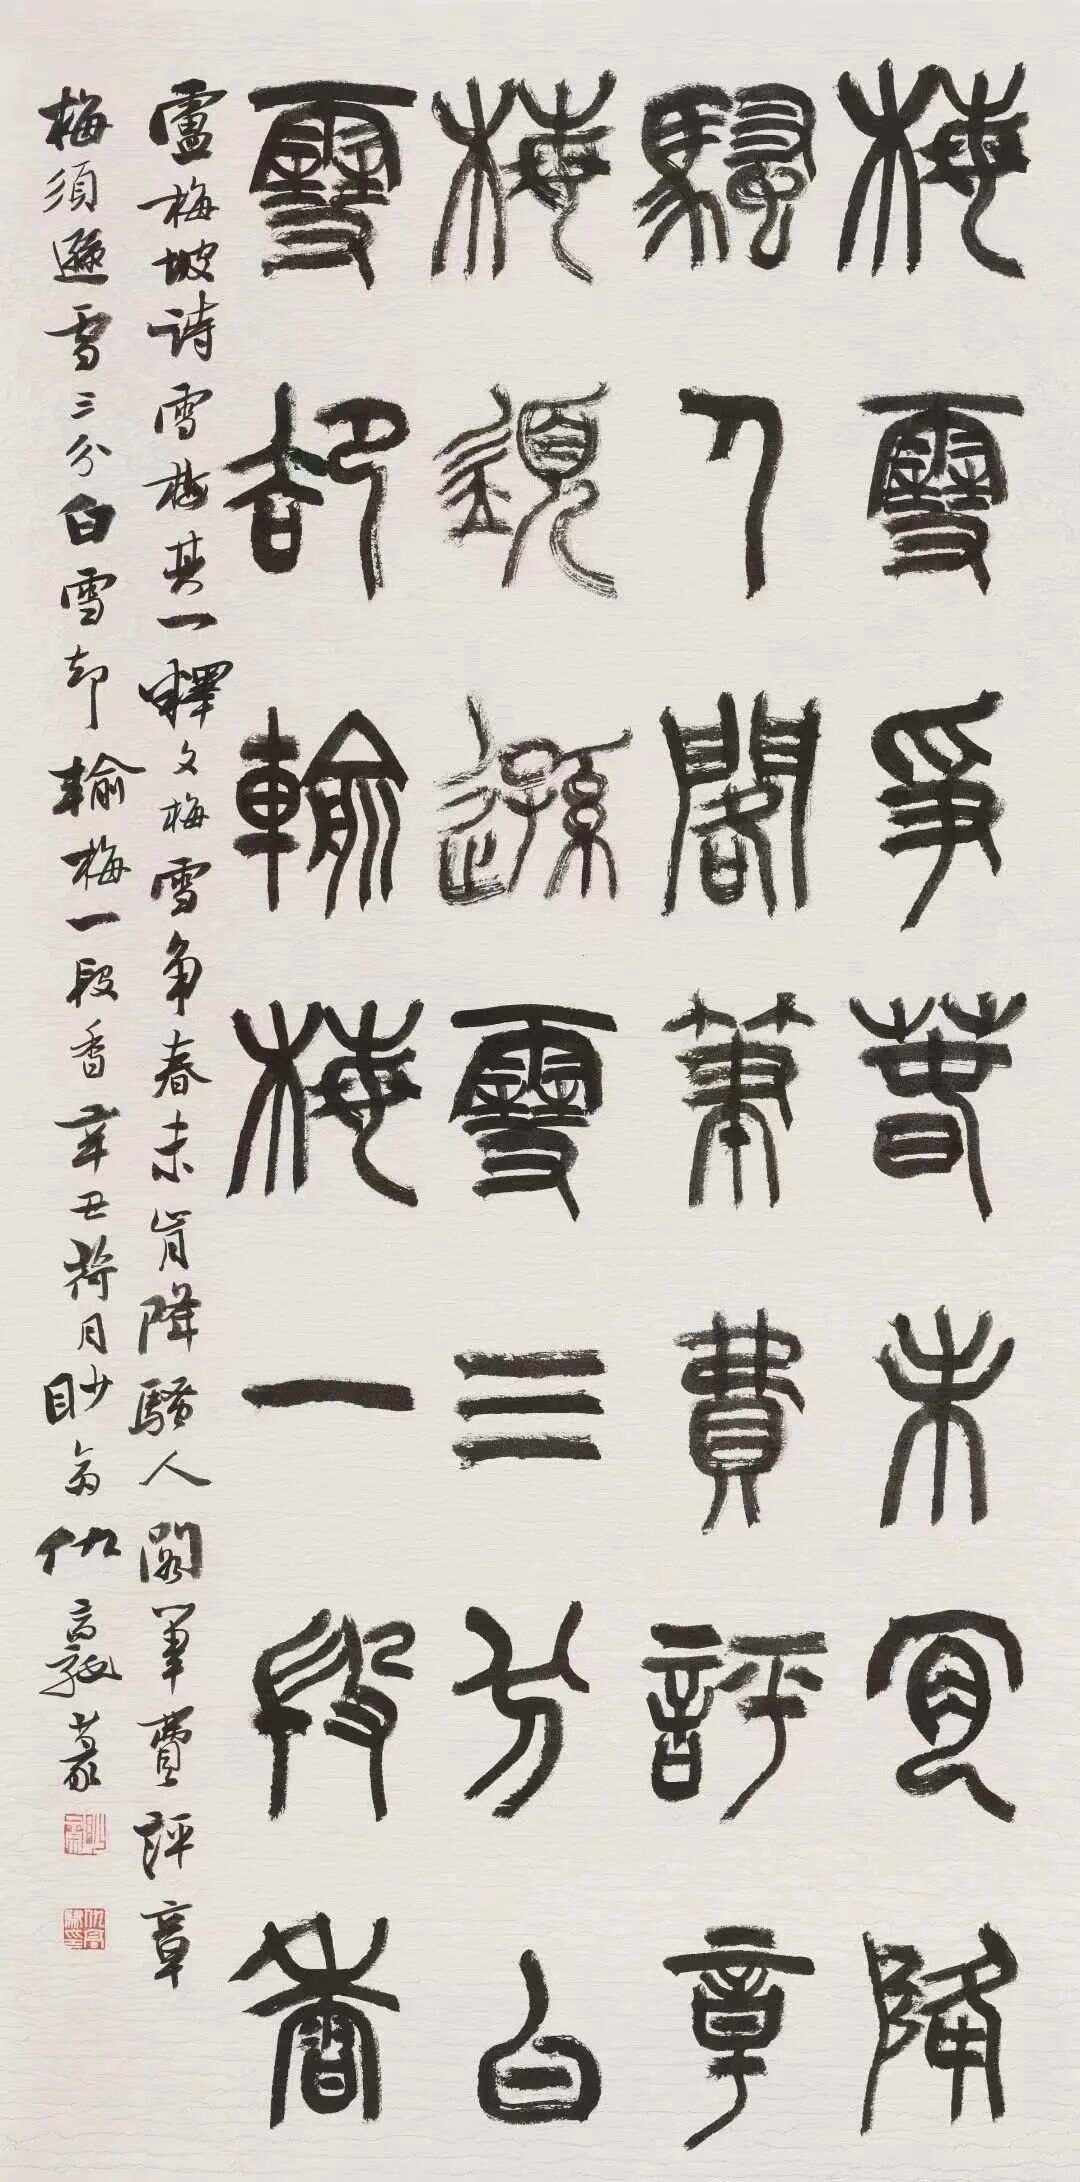 梅雪爭春未肎降
騷人閣筆費評章
梅須遜雪三分白
雪却輸梅一段香
盧梅坡诗雪梅其一釋文梅雪争春未肯降騷人阁筆費評章
梅須遜雪三分白雪却輸梅一段香辛丑荷月眇翁仇高驭篆